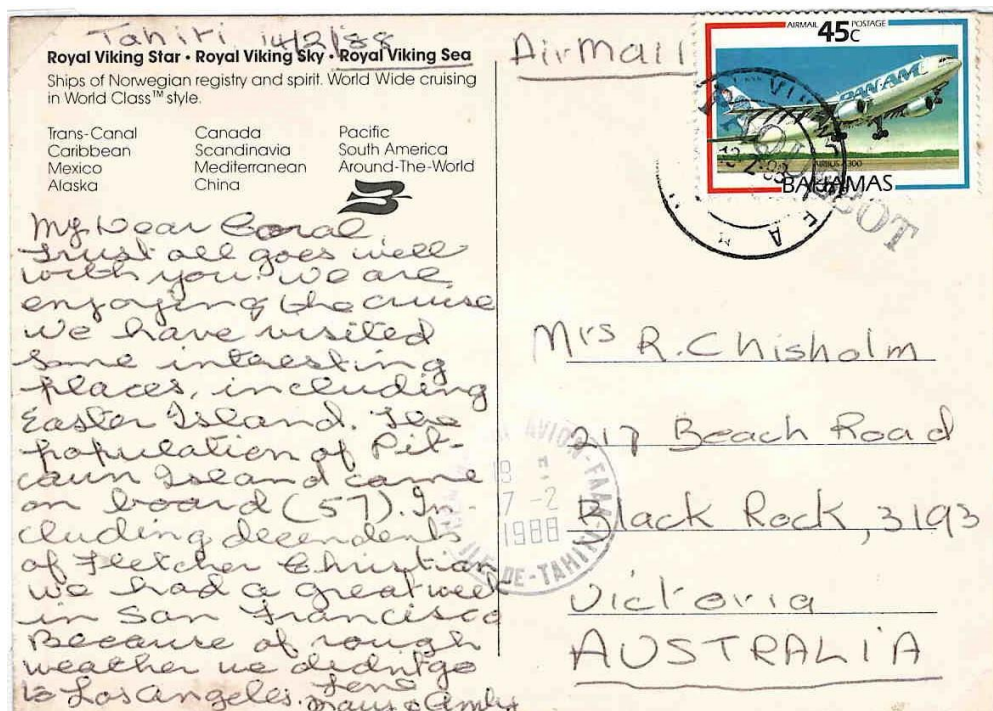 Tahiti 14/2/88
Royal Viking Star • Royal Viking Sky • Royal Viking Sea
Ships of Norwegian registry and spirit. World Wide cruising
in World Class™ style.
Trans-Canal
Caribbean
Mexico
Alaska
Canada
Scandinavia
Mediterranean
China
Pacific
South America
Around-The-World
My Dear Coral
Trust all goes well
with you. We are
enjoying the cruise
we have visited
some intresting
places, including
Easter Island. The
population of Pit-
cairn Island came
on board (57). In
cluding decendents
of Fletcher Christian
we had a great week
in San Francisco
Because of rough
weather we didnt go
to Los Angeles.
Airmail
AIRMAIL 45c POSTAGE
PAN AM
AIRBUS A300
BAHAMAS
PAQUEBOT
Mrs R. Chisholm
217 Beach Road
Black Rock, 3193
Victoria
AUSTRALIA
AVION-FAAA
18
17-2
1988
ILE DE-TAHITI